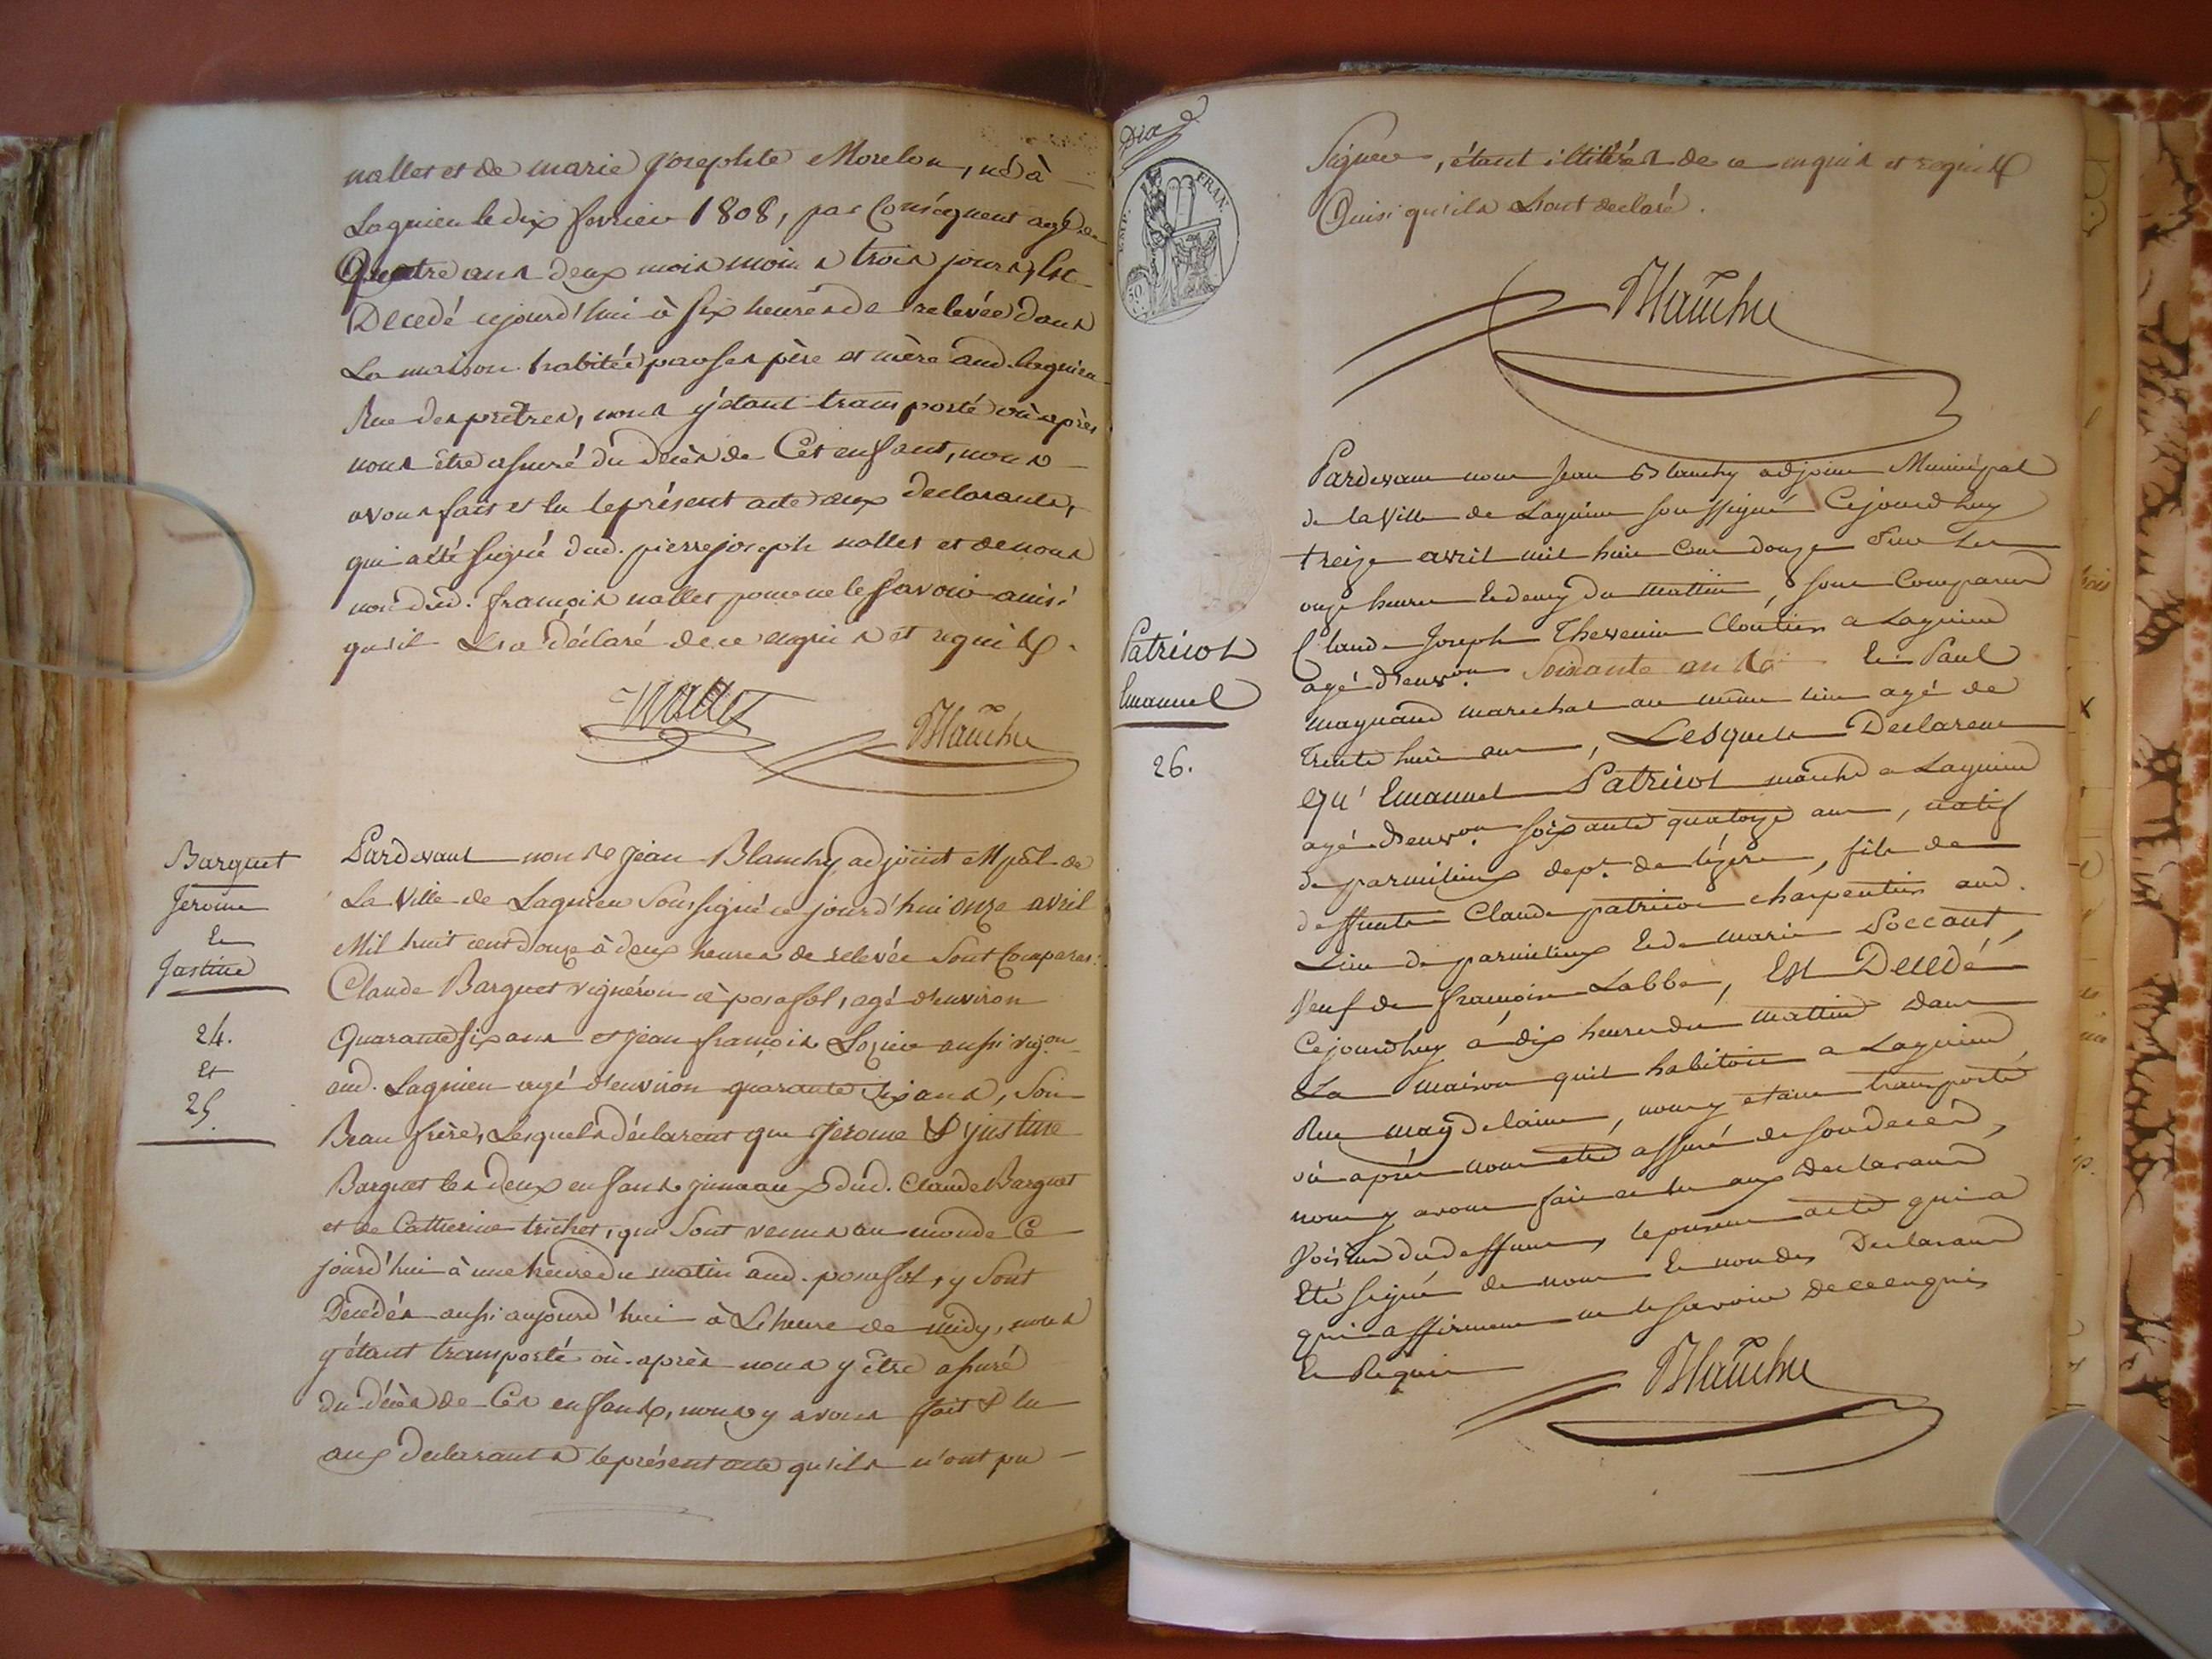 nallet et de marie Josephte Morelon, né à
Lagnieu le dix fevrier 1808, par Conséquent agé de
Quatre ans deux mois moins trois jours, Est
Décedé cejourd'hui à six heures de relevée dans
La maison habitée par ses père et mère aud. lagnieu
Rue des prêtres, nous y étant transporté où après
nous être assuré du décès de Cet enfant, nous
avons fait et lu le présent acte aux declarants,
qui a été signé dud. pierre joseph nallet et de nous
non dud. françois nallet pour ne le savoir ainsi
qu'il L'a déclaré de ce enquis et requis.
Nallet
Blanchy
Barguet
Jerome
Et
Justine
24.
Et
25.
Pardevant nous Jean Blanchy adjoint Mpal de
La Ville de Lagnieu Soussigné ce jourd'hui onze avril
Mil huit cent douze à deux heures de relevée Sont Comparus
Claude Barguet vignéron à posafol, agé d'environ
Quarante six ans et jean françois aussi vigon
aud. Lagnieu agé d'environ quarante six ans, son
Beau frère, Lesquels déclarent que jerome & justine
Barguet les deux enfans jumeaux dud. Claude Barguet
et de Catherine trichet, qui Sont venus au monde Ce
jourd'hui à une heure du matin aud. posafol, y Sont
Décédés aussi aujourd'hui à L'heure de midy, nous
y étant transporté où après nous y être assuré
du décès de Ces enfants, nous y avons fait & lu
aux declarants le présent acte qu'ils n'ont pu
Dix
EMP. FRAN.
50
Signer, étant illitérés de ce enquis et requis
Ainsi qu'ils L'ont declaré.
Blanchy
Patricot
Emanuel
26.
Pardevant nous Jean Blanchy adjoint Municipal
de la Ville de Lagnieu soussigné Cejourdhuy
treize avril mil huit Cent douze Sur les
onze heures Et demy du mattin, sont Comparus
Claude Joseph Thevenin Cloutier a Lagnieu
agé d'environ Soixante ans Et Paul
magnand marechal au même lieu agé de
Trente huit ans, Lesquels Declarent
qu' Emanuel Patricot a Lagnieu
agé d'environ soixante quatorze ans, natif
de parmilieux dept. de lizere, fils de
deffunts Claude patricot charpentier aud.
Lieu de parmilieux Et de marie Soccant,
Veuf de françoise Labbe, Est Decedé
Cejourdhuy à dix heures du mattin dans
La maison quil habitoit a Lagnieu
Rue magdelaine, nous y etant transporté
où après nous etre assuré de son decès,
nous y avons fait et lu aux declarants
Voisins dud deffunt, le present acte qui a
Eté signé de nous Et non des Declarants
qui affirment ne le savoir De ce enquis
Et Requis
Blanchy